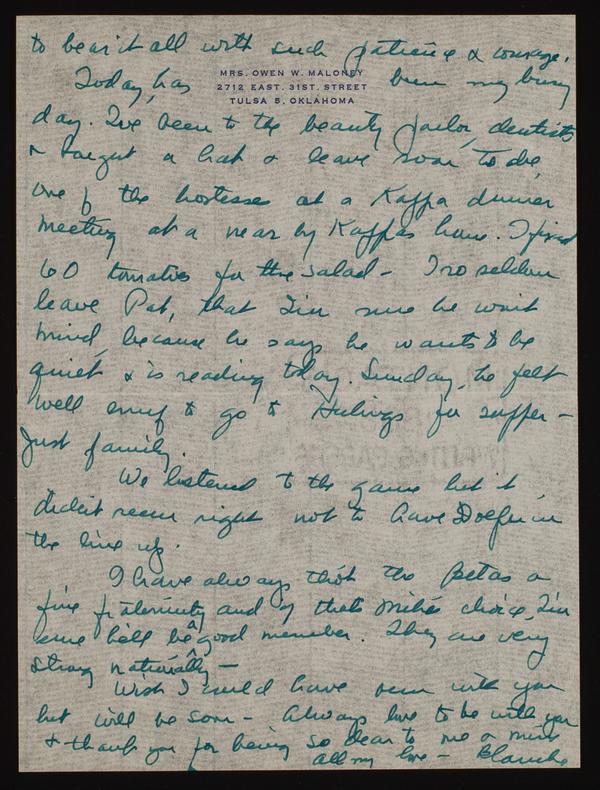 to bear it all with such patience & courage.
MRS. OWEN W. MALONEY
2712 EAST. 31ST. STREET
TULSA 5, OKLAHOMA
Today, has been my busy
day. I've been to the beauty parlor, dentists
& bought a hat & leave soon to be
one of the hostesses at a Kappa dinner
meeting at a near by Kappas home. I fixed
60 tomatoes for the salad - I so seldom
leave Pat, that I'm sure he won't
mind, because he says he wants to be
quiet & is reading today. Sunday, he felt
well enuf to go to Hulings for supper -
Just family.
We listened to the game but it
didn't seem right not to have in
the line up.
I have always thot the Betas a
fine fraternity and if thats Mike's choice, I'm
sure he'll be good member. They are very
strong nationally -
Wish I could have been with you
but will be soon - Always love to be with you
& thank you for being so dear to me & mine
all my love - Blanche